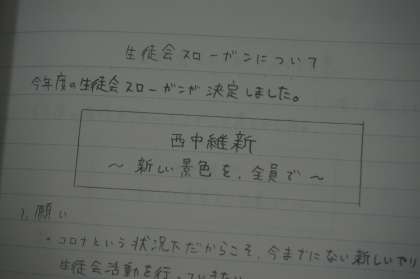 生徒会スローガンについて
今年度の生徒会スローガンが決定しました。
西中維新
～新しい景色を、全員で～
1. 願い
・コロナという状況下だからこそ、今までにない新しいやり
生徒会活動を行っていきたい